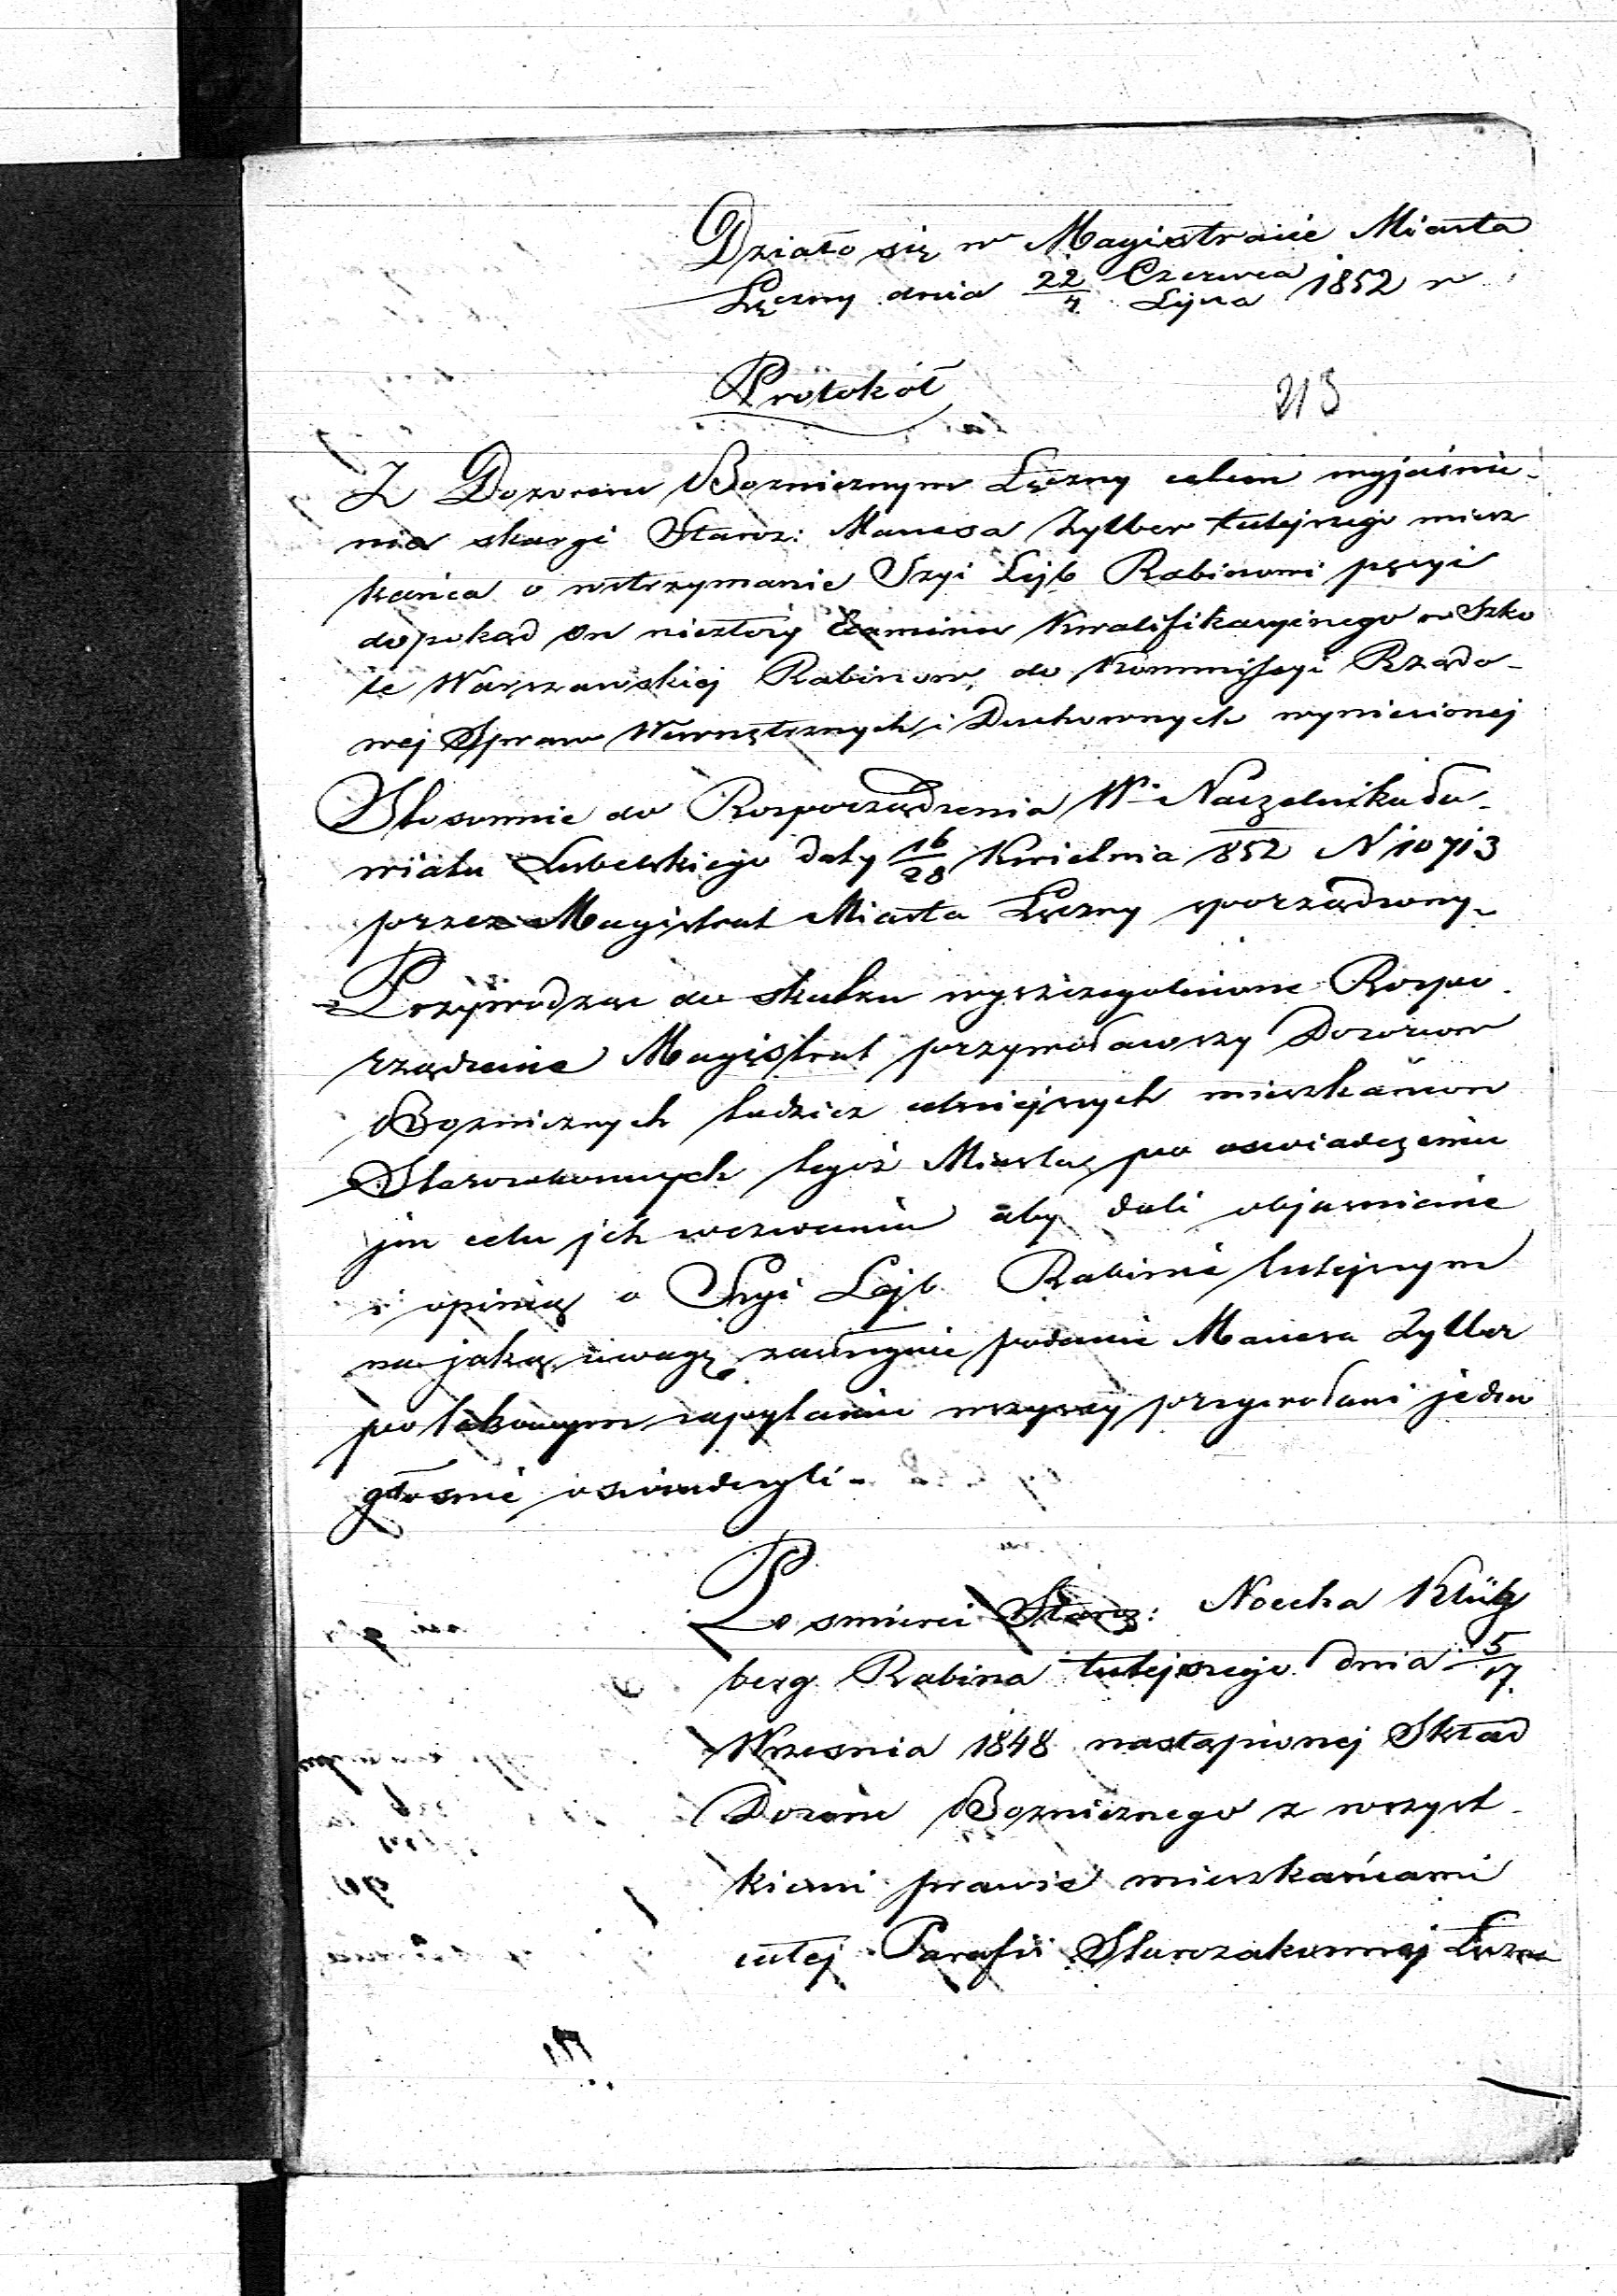 Działo się w Magistracie Miasta
Łęczny dnia 22/4 Czerwca/Lipca 1852 r
Protokół
213
Z Dozorem Boznicznym Łęczny celem wyjaśnie-
nia skargi Staroz: Manesa Zylber tutejszego miesz
kańca o wstrzymanie Szyi Lejb Rabinowi pęsyi
dopokąd on niezłoży Examinu Kwalifikacyinego w Szko
le Warszawskiej Rabinow, do Kommissyi Rządo-
wej Spraw Wewnętrznych i Duchownych wyniesionej
Stosownie do Rosporządzenia W. Naczelnika Po-
wiatu Lubelskiego daty 16/28 Kwietnia 852 N 10713
przez Magistrat Miasta Łęczny sporządzony.
Przywodząc do skutku wyszczegolnione Rospo
rządzenie Magistrat przywoławszy Dozorcow
Bozniczych tudzież celniejszych mieszkańcow
Starozakonnych tegoż Miasta, po oswiadczeniu
jm celu jch wezwania aby dali objasnienie
i opinią o Szyi Lejb Rabinie tutejszym
na jaką uwagę zasługuie podanie Manesa Zylber
po takowym zapytaniu wszyscy przywołani jedno
głosnie oswiadczyli -
Po smierci Staroz: Noecha
berg Rabina tutejszego dnia 5/17
Wrzesnia 1848 nastąpionej Skład
Dozoru Boznicznego z wszyst-
kiemi prawie mieszkańcami
całej Parafii Starozakonnej